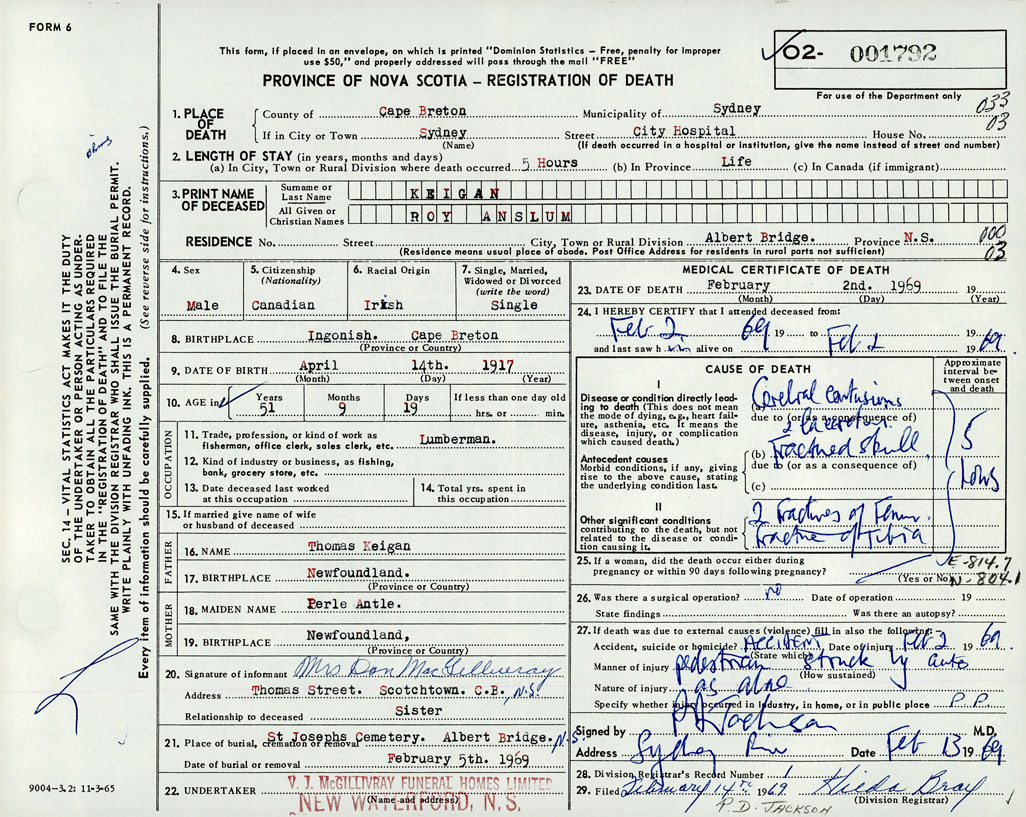 FORM 6
This form, if placed in an envelope, on which is printed "Dominion Statistics – Free, penalty for improper
use $50," and properly addressed will pass through the mail "FREE"
PROVINCE OF NOVA SCOTIA – REGISTRATION OF DEATH
O2- 001792
For use of the Department only
033
03
1. PLACE OF DEATH
County of Cape Breton Municipality of Sydney
If in City or Town Sydney Street City Hospital House No.
(Name) (If death occurred in a hospital or institution, give the name instead of street and number)
2. LENGTH OF STAY (in years, months and days)
(a) In City, Town or Rural Division where death occurred 5 Hours (b) In Province Life (c) In Canada (if immigrant)
3. PRINT NAME OF DECEASED
Surname or Last Name KEIGAN
All Given or Christian Names ROY ANSLUM
RESIDENCE No. Street City, Town or Rural Division Albert Bridge. Province N.S.
(Residence means usual place of abode. Post Office Address for residents in rural parts not sufficient)
000
03
4. Sex Male
5. Citizenship (Nationality) Canadian
6. Racial Origin Irish
7. Single, Married, Widowed or Divorced (write the word) Single
8. BIRTHPLACE Ingonish. Cape Breton
(Province or Country)
9. DATE OF BIRTH April 14th. 1917
(Month) (Day) (Year)
10. AGE in Years 51 Months 9 Days 19 If less than one day old hrs. or min.
OCCUPATION
11. Trade, profession, or kind of work as
fisherman, office clerk, sales clerk, etc. Lumberman.
12. Kind of industry or business, as fishing,
bank, grocery store, etc.
13. Date deceased last worked
at this occupation
14. Total yrs. spent in
this occupation
15. If married give name of wife
or husband of deceased
FATHER
16. NAME Thomas Keigan
17. BIRTHPLACE Newfoundland.
(Province or Country)
MOTHER
18. MAIDEN NAME Perle Antle.
19. BIRTHPLACE Newfoundland,
(Province or Country)
20. Signature of informant Mrs Don MacGillivray
Address Thomas Street. Scotchtown. C.B. N.S.
Relationship to deceased Sister
21. Place of burial, cremation or removal St Josephs Cemetery. Albert Bridge. N.S.
Date of burial or removal February 5th. 1969
22. UNDERTAKER V. J. McGILLIVRAY FUNERAL HOMES LIMITED
(Name and address) NEW WATERFORD, N. S.
MEDICAL CERTIFICATE OF DEATH
23. DATE OF DEATH February 2nd. 1969 19
(Month) (Day) (Year)
24. I HEREBY CERTIFY that I attended deceased from:
Feb 2 69 19 to 19
and last saw h im alive on Feb 2 19 69
CAUSE OF DEATH
Approximate interval between onset and death
I
Disease or condition directly leading to death (This does not mean the mode of dying, e.g., heart failure, asthenia, etc. It means the disease, injury, or complication which caused death.)
(a) Cerebral contusions
due to (or as a consequence of)
& laceration
Antecedent causes
Morbid conditions, if any, giving rise to the above cause, stating the underlying condition last.
(b) Fractured skull
due to (or as a consequence of)
(c)
5
hours
II
Other significant conditions
contributing to the death, but not related to the disease or condition causing it.
2 Fractures of Femur.
Fracture of Tibia
25. If a woman, did the death occur either during
pregnancy or within 90 days following pregnancy?
(Yes or No)
E-814.7
N-804.1
26. Was there a surgical operation? no Date of operation 19
State findings Was there an autopsy?
27. If death was due to external causes (violence) fill in also the following:
Accident, suicide or homicide? ACCIDENT Date of injury Feb 2 19 69
(State which)
Manner of injury pedestrian struck by auto
(How sustained)
Nature of injury as above
Specify whether injury occurred in industry, in home, or in public place P.P.
Signed by P D Jackson M.D.
Address Sydney Date Feb 13 19 69
28. Division Registrar's Record Number 1
29. Filed February 14th 1969 Hilda Bray
(Division Registrar)
P.D. JACKSON
SEC. 14 – VITAL STATISTICS ACT MAKES IT THE DUTY
OF THE UNDERTAKER OR PERSON ACTING AS UNDER-
TAKER TO OBTAIN ALL THE PARTICULARS REQUIRED
IN THE "REGISTRATION OF DEATH" AND TO FILE THE
SAME WITH THE DIVISION REGISTRAR WHO SHALL ISSUE THE BURIAL PERMIT.
WRITE PLAINLY WITH UNFADING INK. THIS IS A PERMANENT RECORD.
Every item of information should be carefully supplied. (See reverse side for instructions.)
9004-3.2: 11-3-65